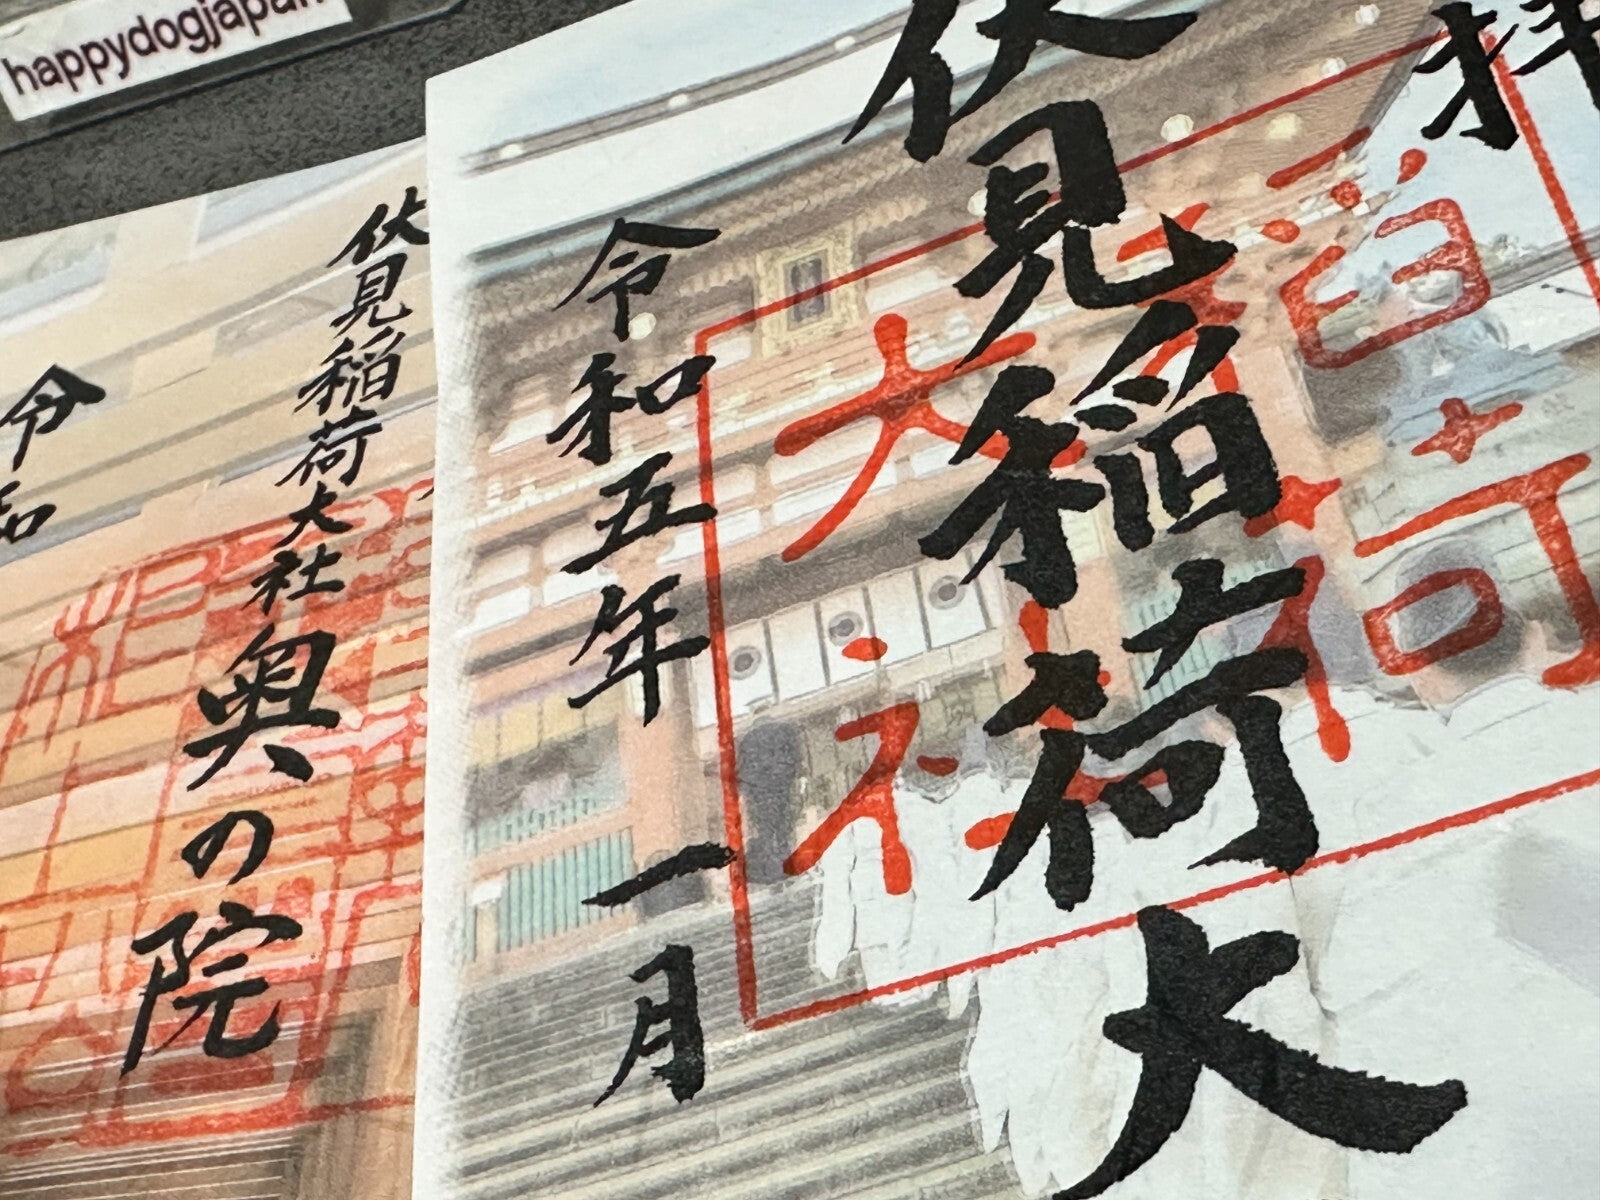 happydogjapan
拝
伏見稲荷大
令和五年一月
稲荷
大社
伏見稲荷大社
奥の院
令和